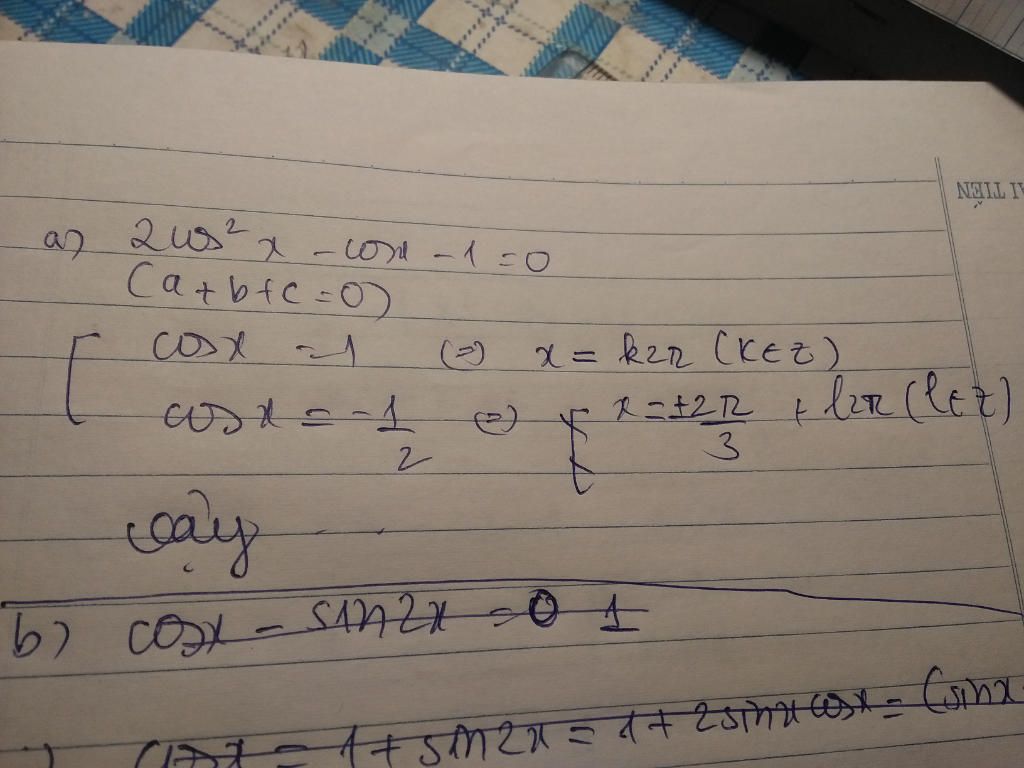 ẢI TIẾN
a) 2cos² x - cosx - 1 = 0
(a + b + c = 0)
cosx = 1 (=) x = k2π (K ∈ Z)
cosx = -1/2 (=) [ x = ±2π/3 + l2π (l ∈ Z)
Vậy - -
b) cosx - sin2x = 0 1
cosx = 1 + sin2x = 1 + 2sinx cosx = (sinx